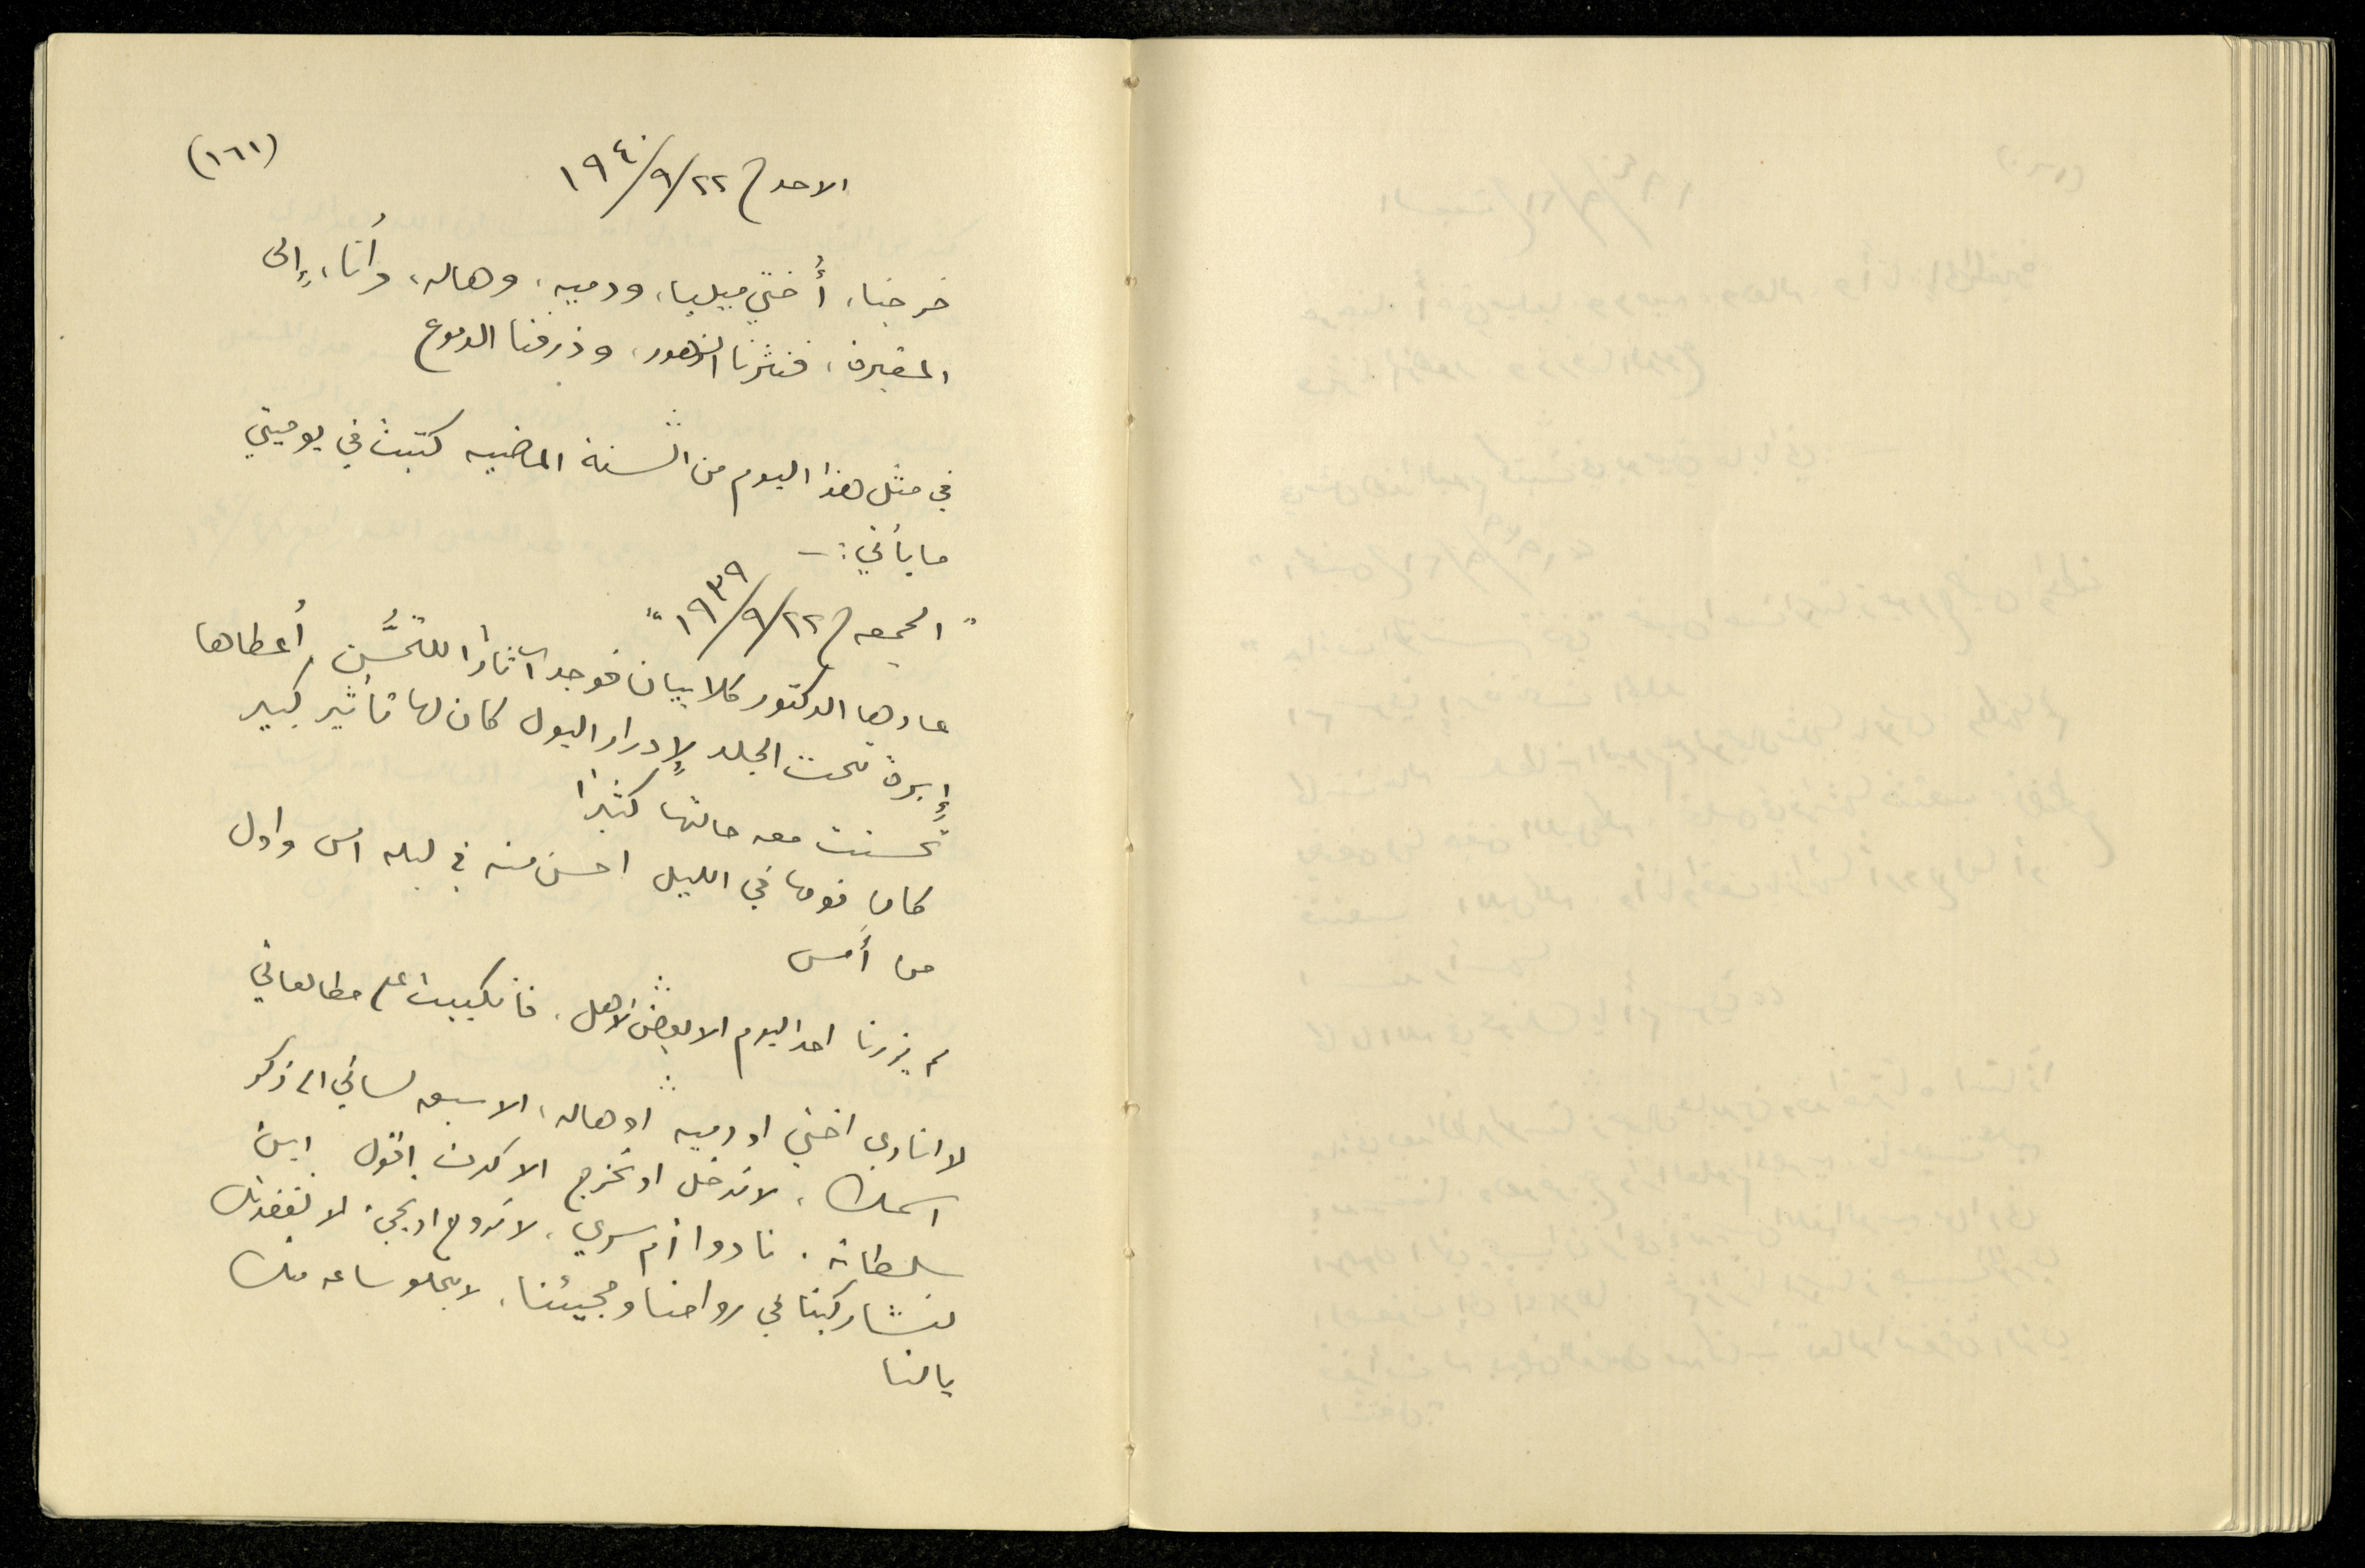 (١٦١)
الاحد ٢٢/٩/١٩٤٠
خرجنا، أُختي ميليا، ودميه، وهاله، وأنا، إلى
المقبرة، فنثرنا الزهور، وذرفنا الدموع
في مثل هذا اليوم من السنة الماضيه كتبت في يوميتي
ما يأتي :ـ
" الجمعه ٢٢/٩/١٩٣٩ "
عادها الدكتور كلابيان فوجد آثاراً للتحسُّن، أعطاها
إبرة تحت الجلد لإدرار البول كان لها تأثير كبير
تحسنت معه حالتها كثيراً
كان نومها في الليل احسن منه في ليله امس واول
من أمس
لم يزرنا احد اليوم الا بعض الاهل، فانكببت على مطالعاتي
لا انادي اختي او دميه او هاله، الا سبق لساني الى ذكر
اسمك، لا ندخل او نخرج الا كدت اقول اين
سلطانه. نادوا أم سري، لا نروح او نجيء الا نفتقدك
لتشاركينا في رواحنا ومجيئنا، لا تخلو ساعه منك
يا لنا